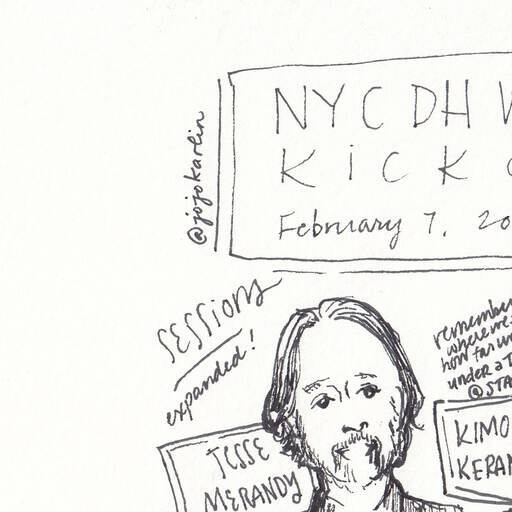 @jojokarlin
NYC DH W
KICK O
February 7, 20
SESSIONS
expanded!
remember
where we
how far
under a T
@STA
JESSE
MERANDY
KIMO
KERAN